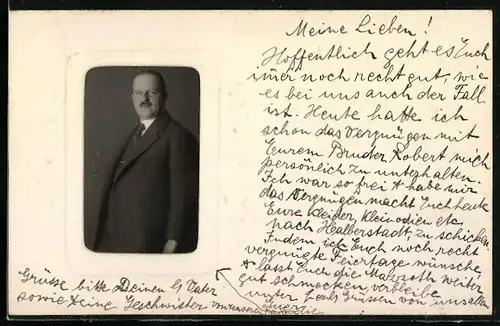 Meine Lieben!
Hoffentlich geht es Euch
imer noch recht gut, wie
es bei uns auch der Fall
ist. Heute hatte ich
schon das Vergnügen mit
Eurem Bruder Robert mich
persönlich zu unterhalten.
Ich war so frei & habe mir
das Vergnügen macht Euch heute
Eure Kleider, Kleinodien etc
nach Halberstadt, zu schicken
Indem ich Euch noch recht
vergnügte Feiertage wünsche,
& lasst Euch die Mazzoth weiter
gut schmecken, verbleibe
unter herzl. Grüssen von uns allen
Grüsse bitte Deinen lb Vater
sowie Geschwister von unserer